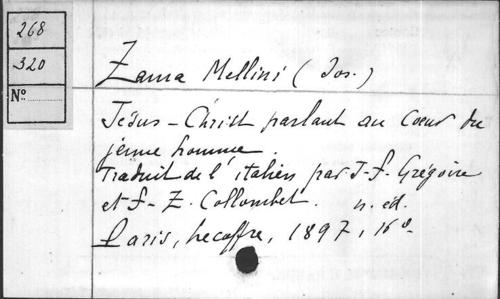 268
320
No
Zama Mellini (Jos.)
Jésus-Christ parlant au Coeur du
jeune homme.
Traduit de l'italien par J-F. Grégoire
et F-Z. Collombet. n. éd.
Paris, Lecoffre, 1897, 16º.